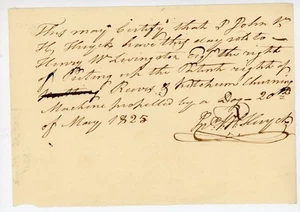 This may Certify that I John Van
H. Huyck have this day sold to
Henry W. Livingston Esqr the right
of Puting up the Patent right of
Reeves & Kitchum Churning
Machine propelled by a Dog - 20th
of May 1823
Huyck